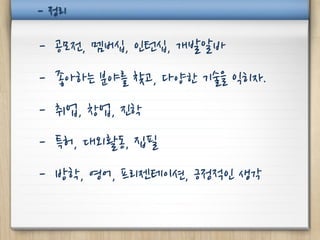 - 정리
- 공모전, 멤버십, 인턴십, 개발알바
- 좋아하는 분야를 찾고, 다양한 기술을 익히자.
- 취업, 창업, 진학
- 특허, 대외활동, 집필
- 방학, 영어, 프리젠테이션, 긍정적인 생각